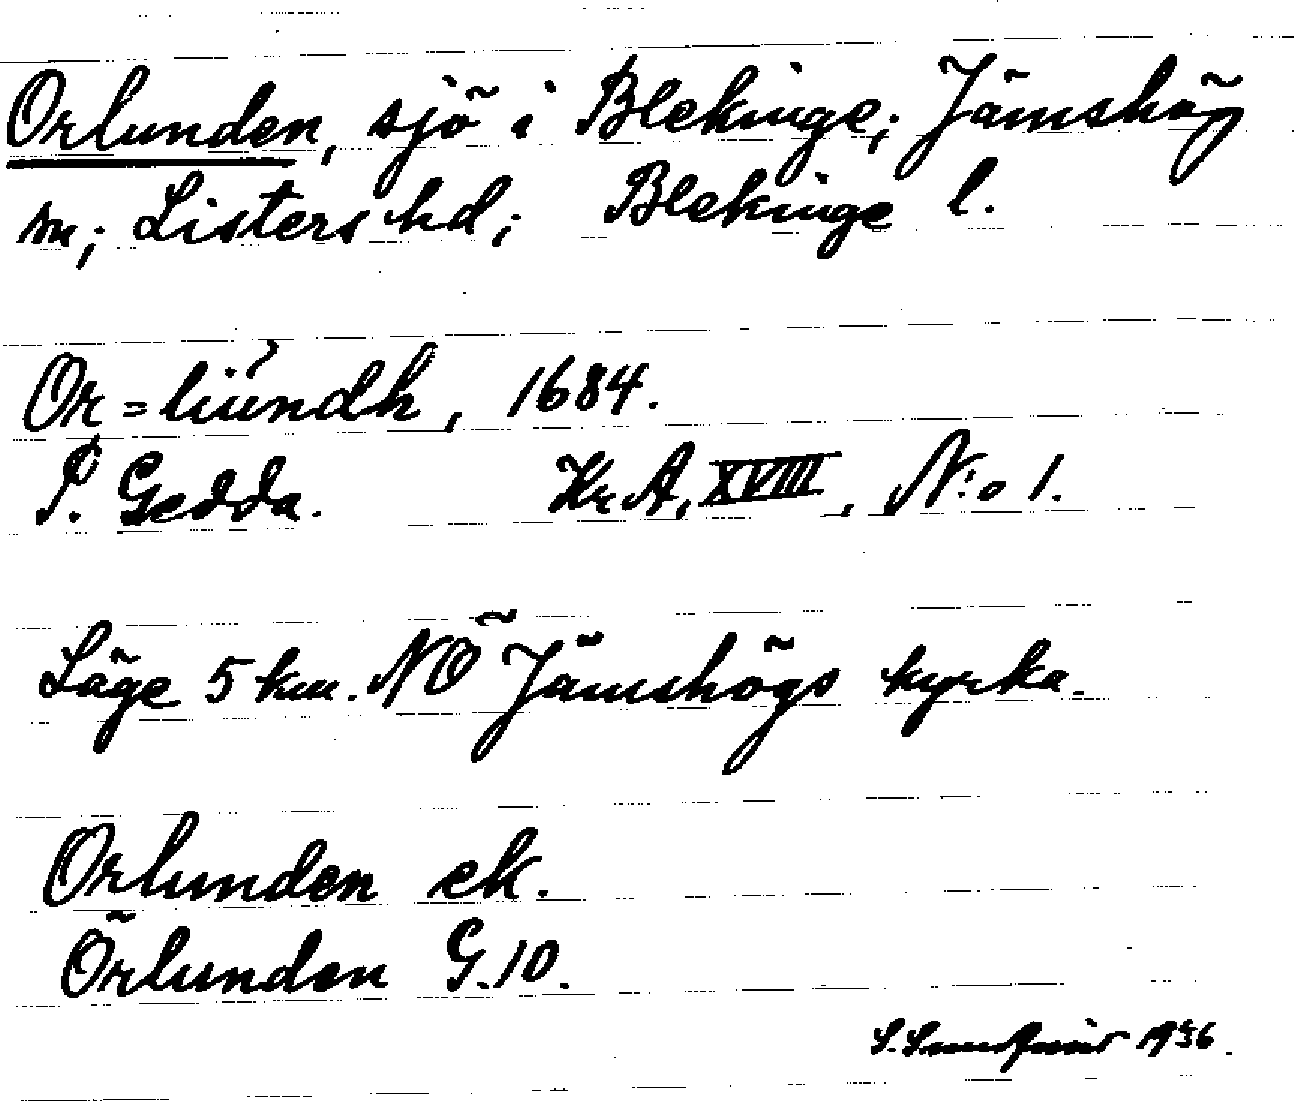 Orlunden, sjö i Blekinge; Jämshög
sn; Listers hd; Blekinge l.
Or=liündh, 1684.
P. Gedda. Kr.A, XVIII, N:o 1.
Läge 5 km. NÖ Jämshögs kyrka.
Orlunden ek.
Örlunden G.10.
S. 1936.